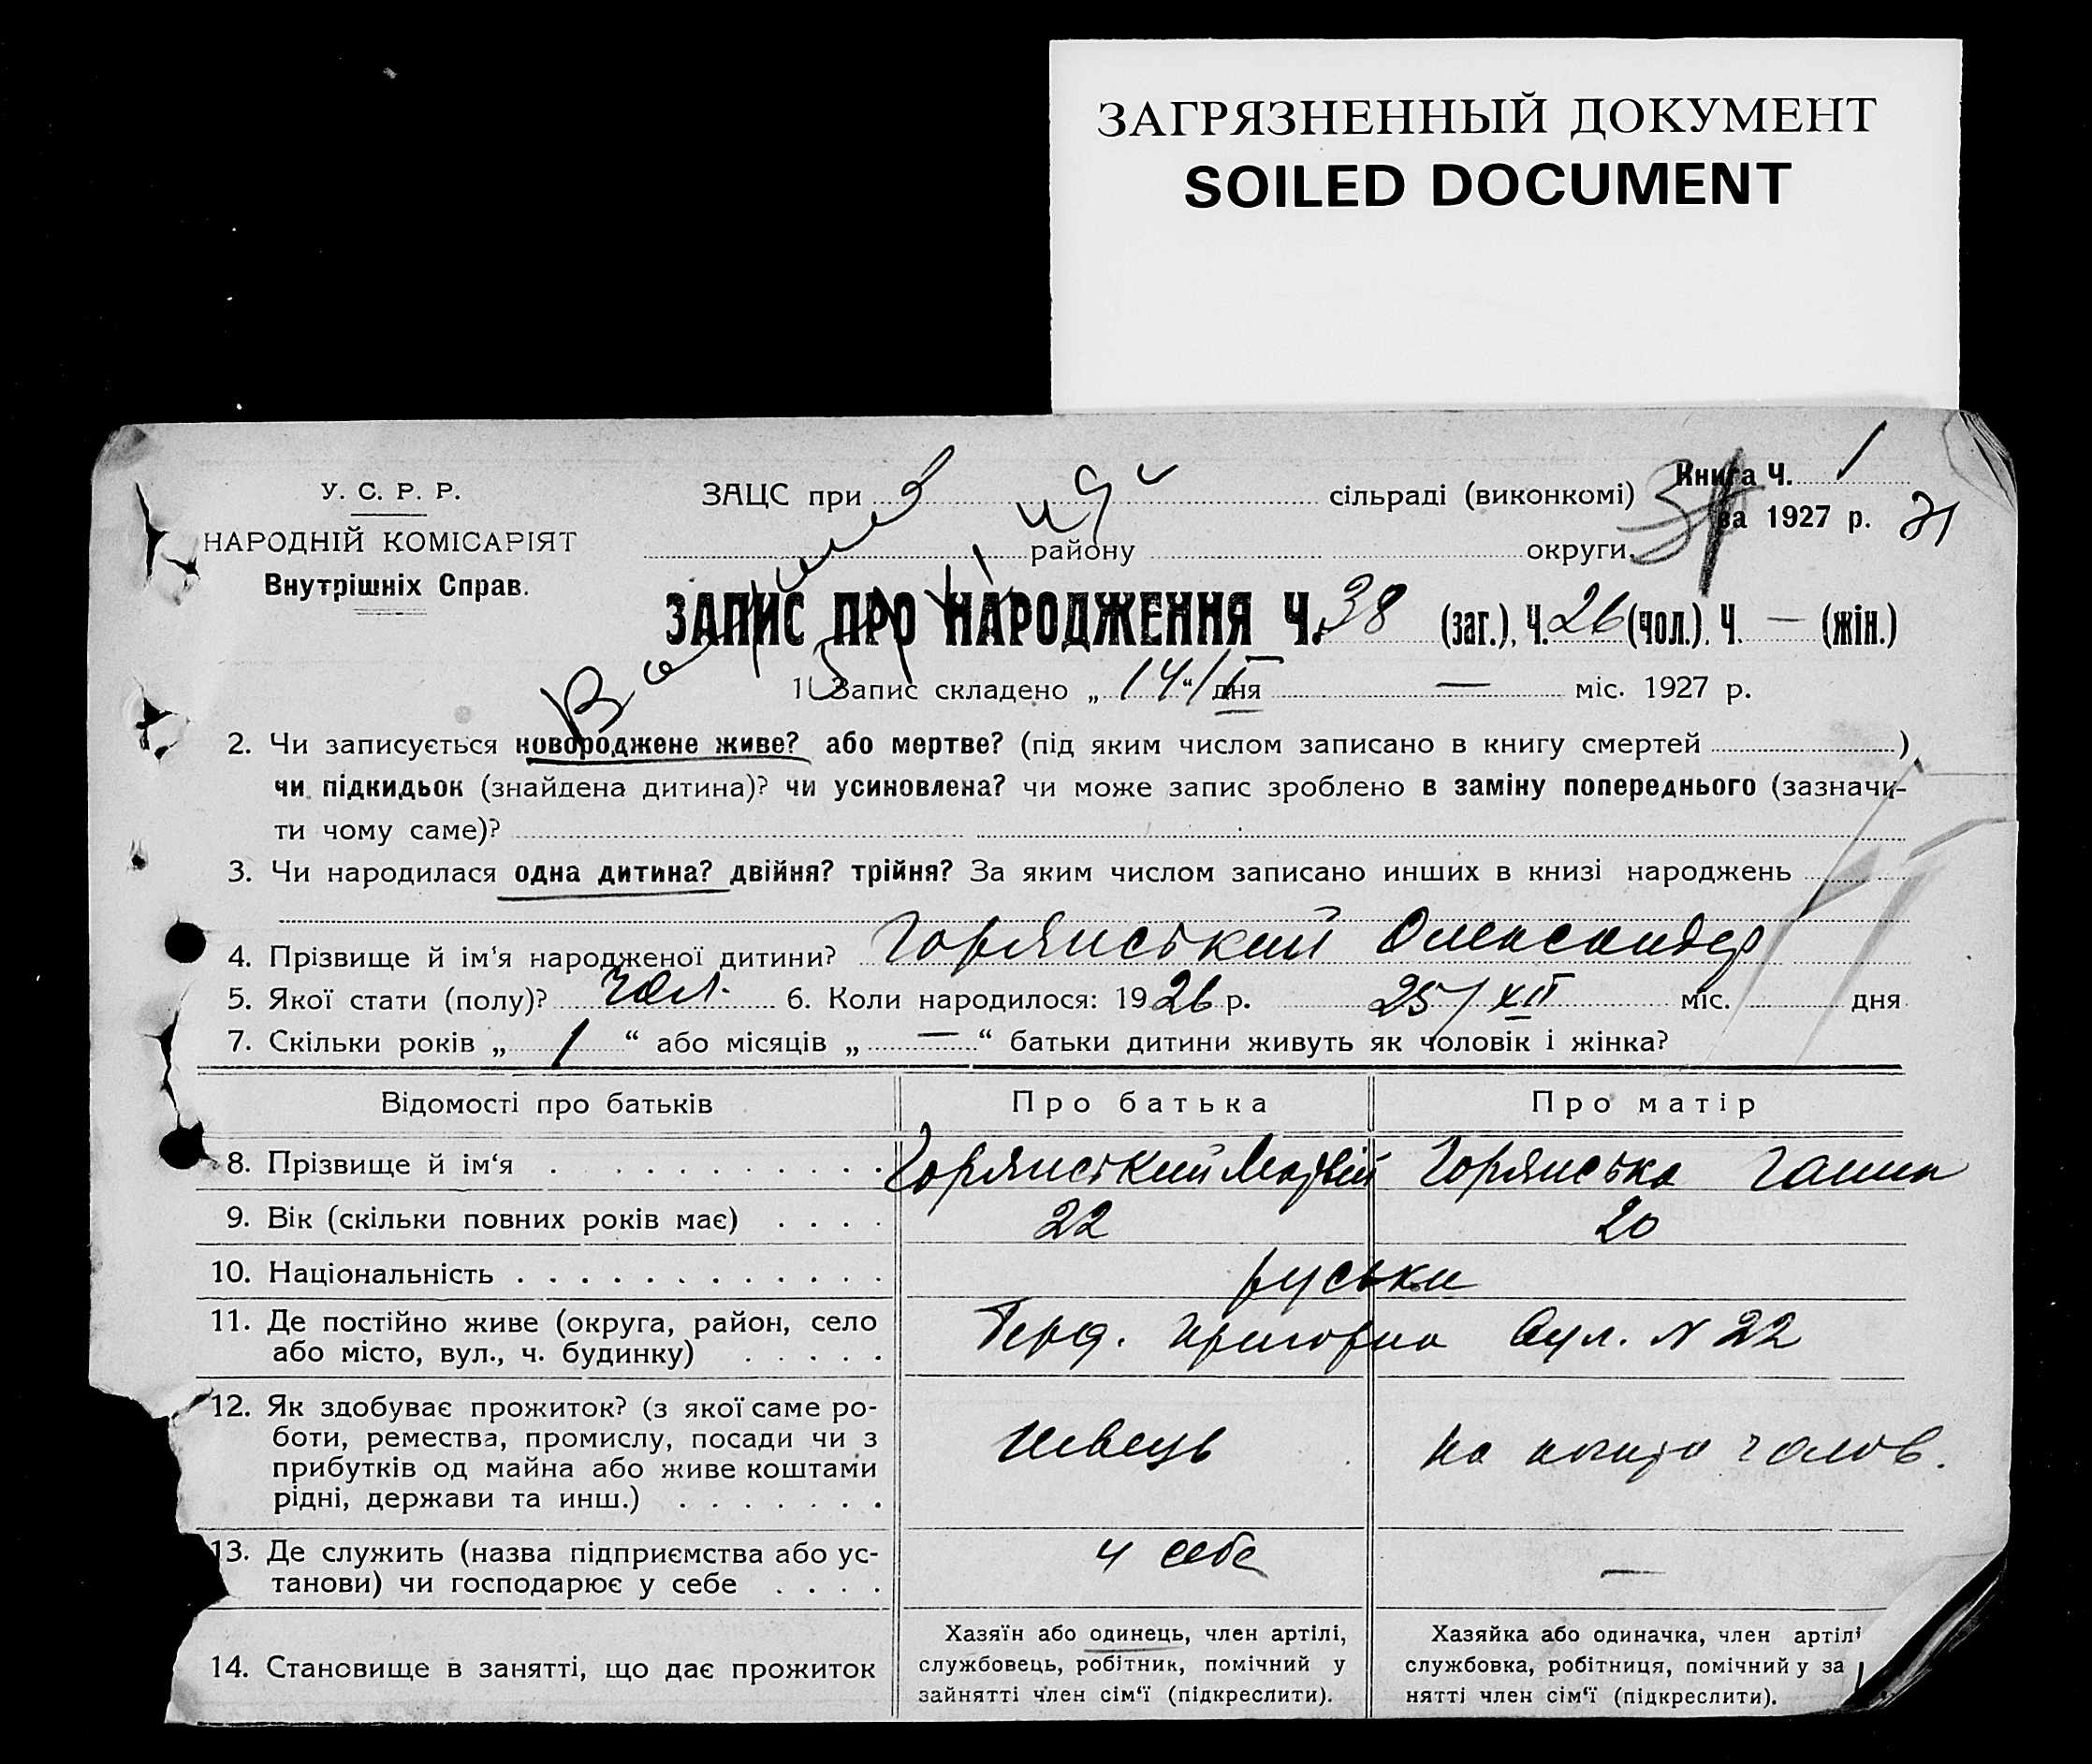 ЗАГРЯЗНЕННЫЙ ДОКУМЕНТ
SOILED DOCUMENT
У. С. Р. Р.
НАРОДНІЙ КОМІСАРІЯТ
Внутрішніх Справ.
ЗАЦС при сільраді (виконкомі)
району округи.
Книга Ч. 1
за 1927 р. 31
ЗАПИС ПРО НАРОДЖЕННЯ Ч. 38 (заг.), Ч. 26 (чол.). Ч. — (жін.)
1. Запис складено „14/I“ дня — міс. 1927 р.
2. Чи записується новороджене живе? або мертве? (під яким числом записано в книгу смертей )
чи підкидьок (знайдена дитина)? чи усиновлена? чи може запис зроблено в заміну попереднього (зазначи-
ти чому саме)?
3. Чи народилася одна дитина? двійня? трійня? За яким числом записано инших в книзі народжень
4. Прізвище й ім‘я народженої дитини? Горянський Олександр
5. Якої стати (полу)? чол. 6. Коли народилося: 1926 р. 25/XII міс. дня
7. Скільки років „ 1 “ або місяців „ — “ батьки дитини живуть як чоловік і жінка?
Відомості про батьків Про батька Про матір
8. Прізвище й ім‘я . . . . . . . . . . Горянський Матвій Горянська Ганна
9. Вік (скільки повних років має) . . . . 22 20
10. Національність . . . . . . . . . . . . руськи
11. Де постійно живе (округа, район, село
або місто, вул., ч. будинку) . . . . . вул. N 22
12. Як здобуває прожиток? (з якої саме ро-
боти, ремества, промислу, посади чи з
прибутків од майна або живе коштами
рідні, держави та инш.) . . . . . . . швець на кошти чолов.
13. Де служить (назва підприємства або ус-
танови) чи господарює у себе . . . . у себе —
14. Становище в занятті, що дає прожиток
Хазяїн або одинець, член артілі,
службовець, робітник, помічний у
зайнятті член сім‘ї (підкреслити).
Хазяйка або одиначка, член артілі
службовка, робітниця, помічний у за
нятті член сім‘ї (підкреслити).